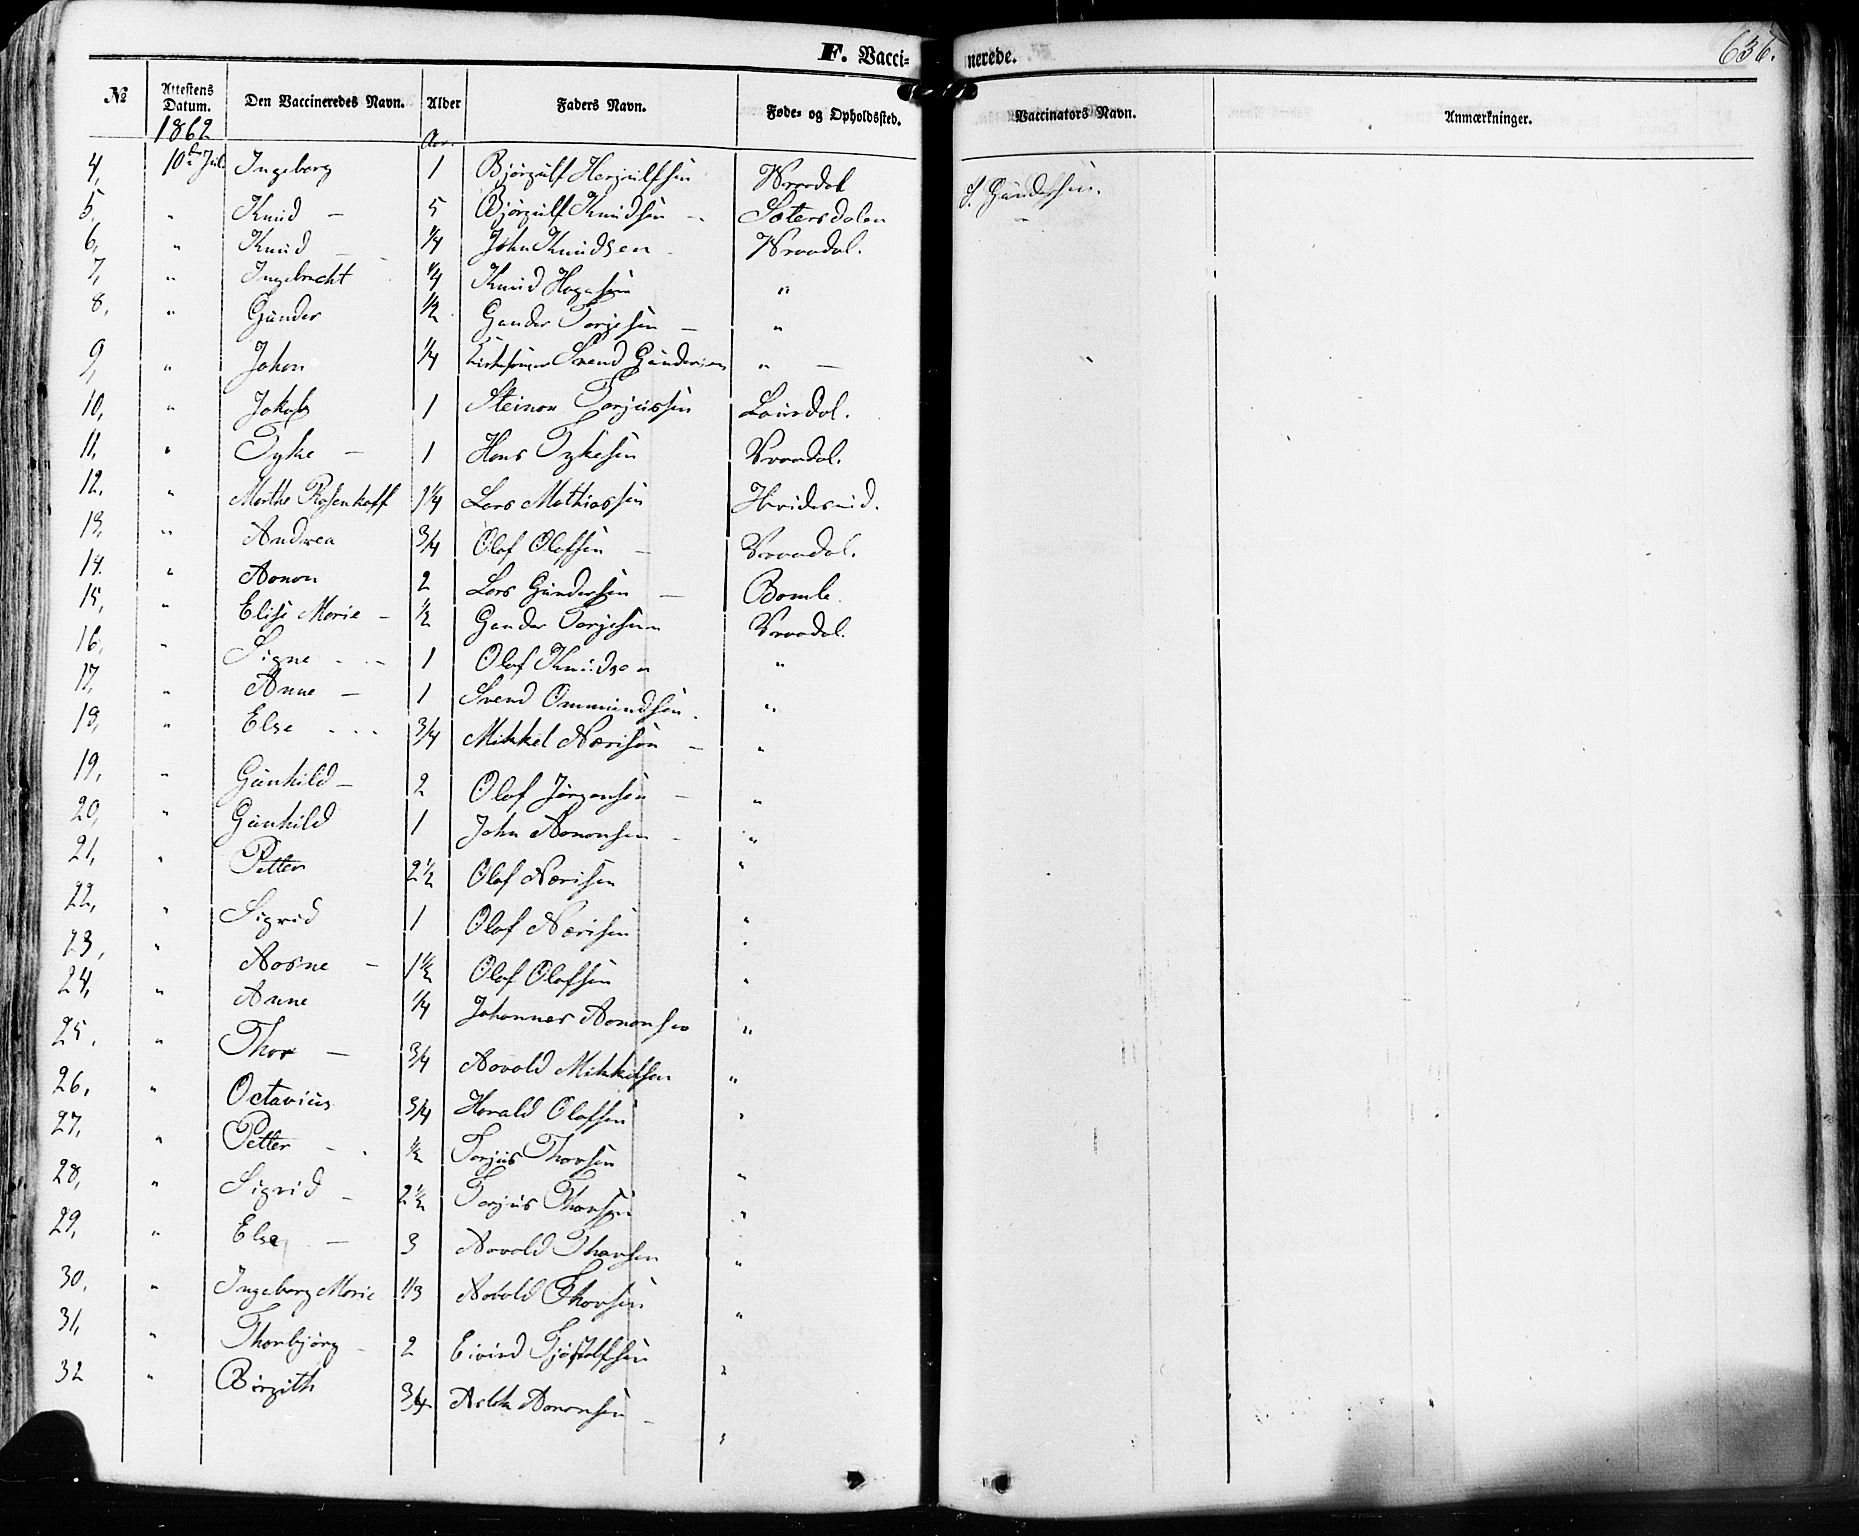 F. Vacci-
nerede.
636.
No
Attestens Datum.
Den Vaccineredes Navn.
Alder
Faders Navn.
Føde- og Opholdssted.
Vaccinators Navn.
Anmærkninger.
1862
Aar.
4, 10de Jul Ingeborg 1 Bjørgulf Herjulfsen Wraadal S. Gundersen.
5, " Knud – 5 Bjørgulf Knudsen – Sætersdalen "
6, " Knud – 1/4 John Knudsen – Wraadal.
7, " Ingebrecht 1/4 Knud "
8, " Gunder 1/2 Gunder Torjesen – "
9, " Johan 1/4 Kirkesanger Svend Gundersen " –
10, " Jakob 1 Steinar Torjussen Laurdal.
11, " Tyke – 1 Hans Tykesen Vraadal.
12, " Marthe Rosenhoff 1 1/4 Lars Mathiassen Hvideseid.
13, " Andrea 3/4 Olaf Olafsen – Vraadal.
14. " Aanon 2 Lars Gundersen – Bamle.
15, " Elise Marie – 1/2 Gunder Torjesen Vraadal.
16, " Signe – 1 Olaf Knudsen "
17, " Anne – 1 Svend Ommundsen. "
18, " Else 3/4 Mikkel Nærisen – "
19, " Gunhild – 2 Olaf Jørgensen – "
20, " Gunhild 1 John Aanonsen – "
21, " Petter 2 1/2 Olaf Nærisen "
22, " Sigrid 1 Olaf Nærisen "
23, " Aasne – 1 1/2 Olaf Olafsen "
24, " Anne 1/4 Johannes Aanonsen "
25, " Thor – 3/4 Aavald Mikkelsen "
26, " Octavius 3/4 Harald Olafsen "
27, " Petter – 1/2 Torjus Thorsen "
28, " Sigrid – 2 1/2 Torjus Thorsen "
29, " Else – 3 Aavald Thorsen "
30, " Ingeborg Marie 1/3 Aavald Thorsen "
31, " Thorbjørg – 2 Eivind Tjøstolfsen "
32 " Birgith 3/4 Aslak Aanonsen – "